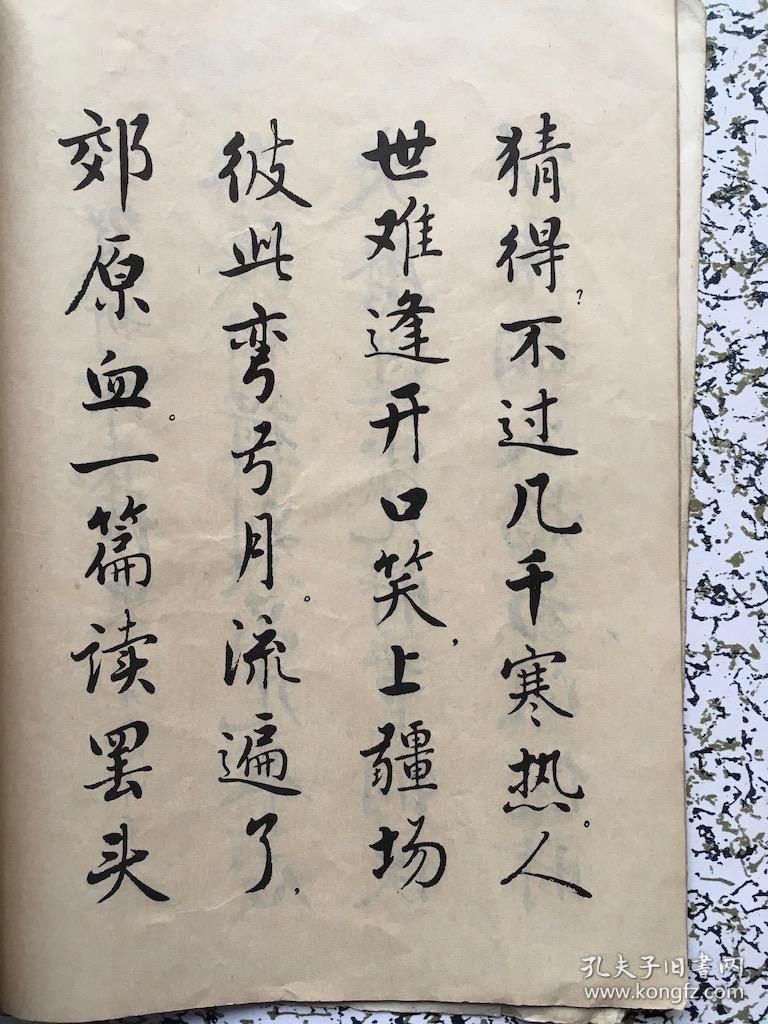 猜得？不过几千寒热。人
世难逢开口笑，上疆场
彼此弯弓月。流遍了，
郊原血。一篇读罢头
孔夫子旧书网
www.kongfz.com